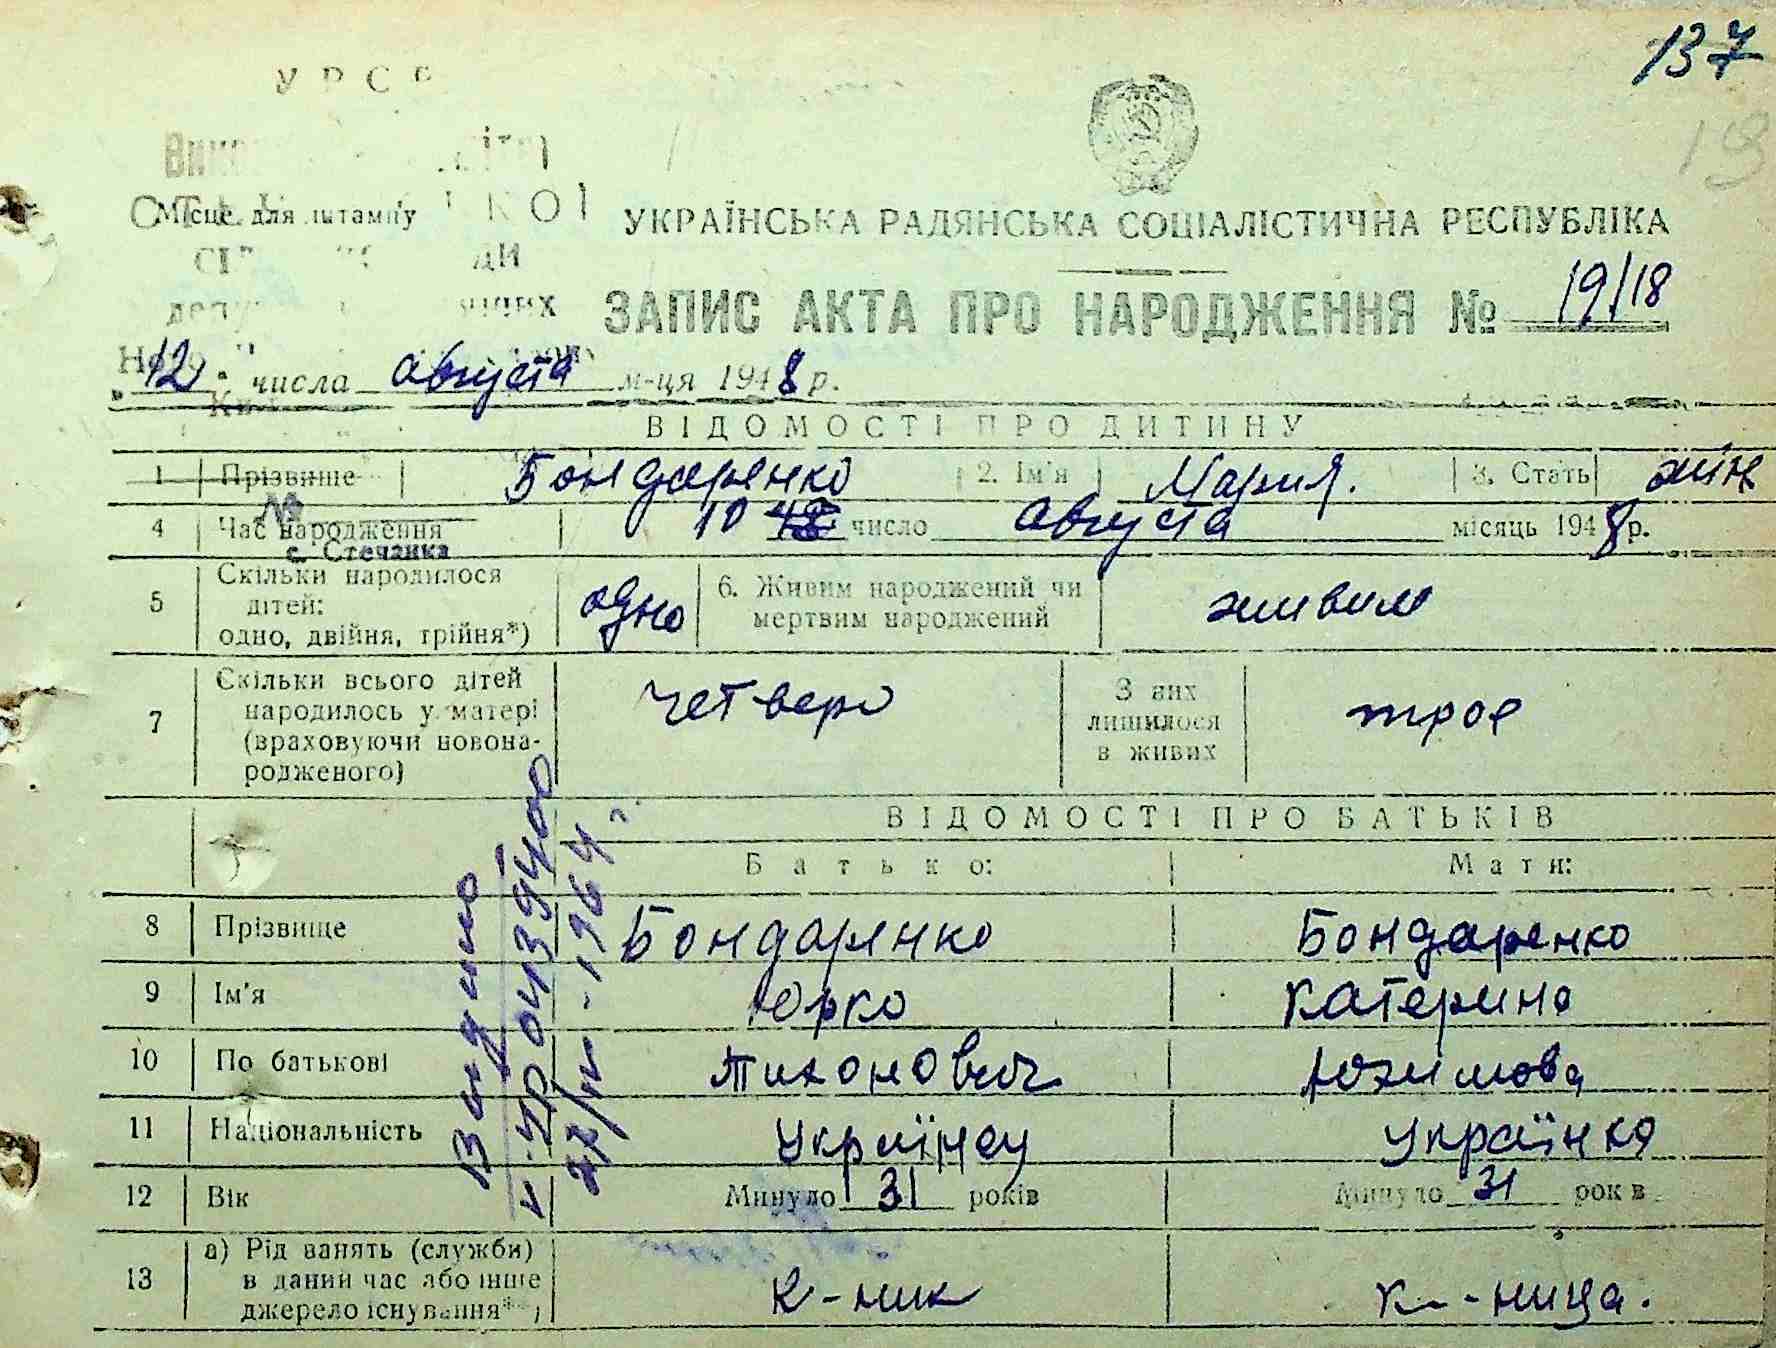 137
19
У Р С Р
Місце для штампу
УКРАЇНСЬКА РАДЯНСЬКА СОЦІАЛІСТИЧНА РЕСПУБЛІКА
ЗАПИС АКТА ПРО НАРОДЖЕННЯ № 19/18
„12" числа августа м-ця 1948 р.
ВІДОМОСТІ ПРО ДИТИНУ
1 Прізвище Бондаренко 2. Ім'я Мария. 3. Стать жін
№
4 Час народження 10 число августа місяць 1948 р.
с. Стечанка
5 Скільки народилося дітей: одно, двійня, трійня*) одно 6. Живим народжений чи мертвим народжений живим
7 Скільки всього дітей народилось у матері (враховуючи новонародженого) четверо З них лишилося в живих трое
ВІДОМОСТІ ПРО БАТЬКІВ
Батько: Мати:
8 Прізвище Бондаренко Бондаренко
9 Ім'я Юрко Катерина
10 По батькові Тихонович Юхимова
11 Національність Українец Українка
12 Вік Минуло 31 років Минуло 31 років
13 а) Рід занять (службы) в даний час або інше джерело існування**) К-ник К-ница.
Видано
УР 0439400
1964 г.